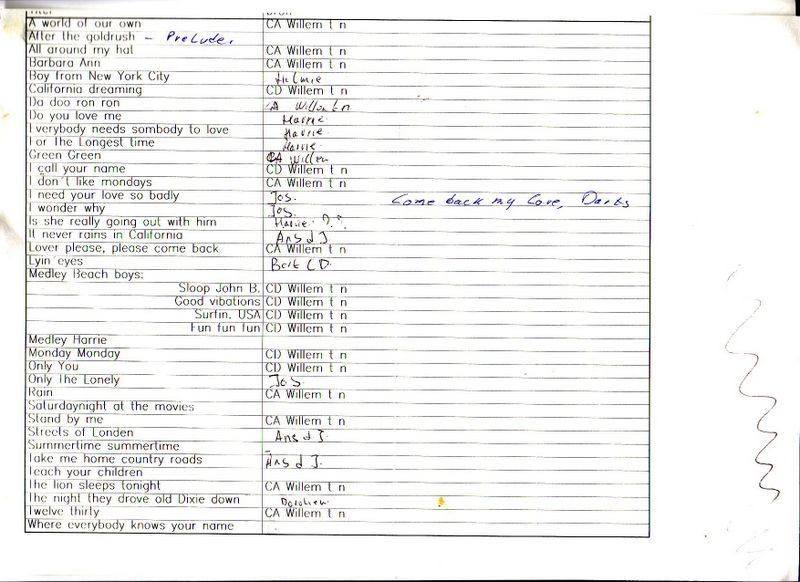 A world of our own CA Willem t n
After the goldrush - Prelude.
All around my hat CA Willem t n
Barbara Ann CA Willem t n
Boy from New York City
California dreaming CD Willem t n
Da doo ron ron CA Willem t n
Do you love me Harrie
Everybody needs sombody to love Harrie
For The Longest time Harrie
Green Green CA Willem
I call your name CD Willem t n
I don't like mondays CA Willem t n
I need your love so badly Jos. Come back my Love, Darts
I wonder why Jos.
Is she really going out with him Harrie ??
It never rains in California Ans d J.
Lover please, please come back CA Willem t n
Lyin' eyes Bert CD.
Medley Beach boys:
Sloop John B. CD Willem t n
Good vibations CD Willem t n
Surfin, USA CD Willem t n
Fun fun fun CD Willem t n
Medley Harrie
Monday Monday CD Willem t n
Only You CD Willem t n
Only The Lonely Jos
Rain CA Willem t n
Saturdaynight at the movies
Stand by me CA Willem t n
Streets of Londen Ans d J.
Summertime summertime
Take me home country roads Ans d J.
Teach your children
The lion sleeps tonight CA Willem t n
The night they drove old Dixie down
Twelve thirty CA Willem t n
Where everybody knows your name